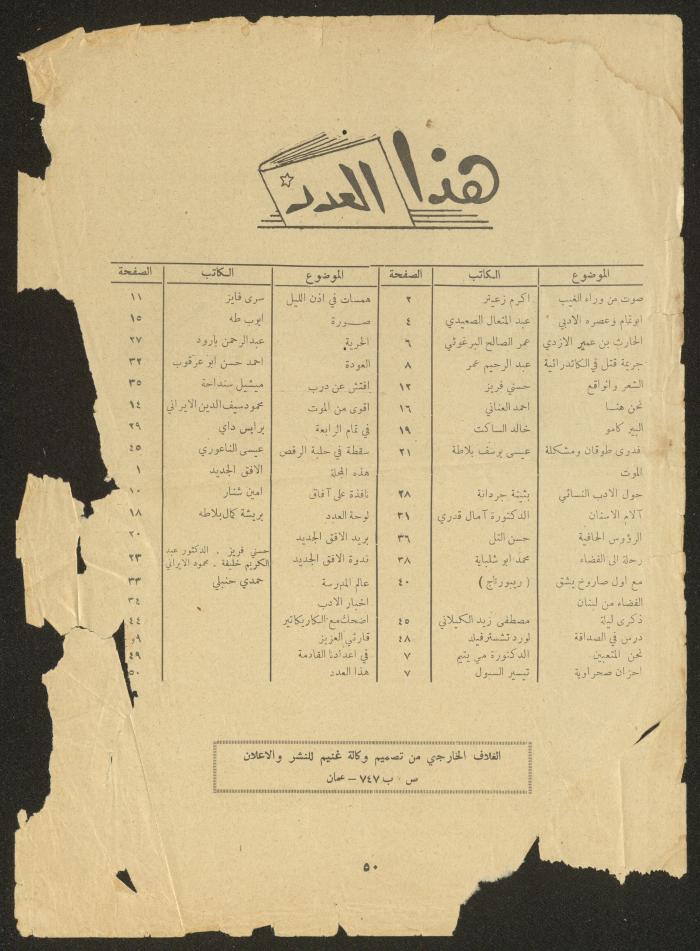 هذا العدد
الموضوع الكاتب الصفحة
صوت من وراء الغيب اكرم زعيتر ٢
ابو تمام وعصره الادبي عبد المتعال الصعيدي ٤
الحارث بن عمير الازدي عمر الصالح البرغوثي ٦
جريمة قتل في الكاتدرائية عبد الرحيم عمر ٨
الشعر والواقع حسني فريز ١٢
نحن هنا احمد العناني ١٦
البير كامو خالد الساكت ١٩
فدوى طوقان ومشكلة عيسى يوسف بلاطة ٢١
الموت
حول الادب النسائي بثينة جردانة ٢٨
آلام الاسنان الدكتورة آمال قدري ٣١
الرؤوس الخاوية حسن التل ٣٦
رحلة الى الفضاء محمد ابو شلباية ٣٨
مع اول صاروخ يشق ( ريبورتاج ) ٤٠
الفضاء من لبنان
ذكرى ليلة مصطفى زيد الكيلاني ٤٥
درس في الصداقة لورد تشسترفيلد ٤٨
نحن المتعبين الدكتورة مي يتيم ٧
احزان صحراوية تيسير السبول ٧
الموضوع الكاتب الصفحة
همسات في اذن الليل سرى فايز ١١
صورة ايوب طه ١٥
الحرية عبد الرحمن بارود ٢٧
العودة احمد حسن ابو عرقوب ٣٢
افتش عن درب ميشيل سنداحة ٣٥
اقوى من الموت محمود سيف الدين الايراني ١٤
في تمام الرابعة برايس داي ٢٩
سقطة في حلبة الرقص عيسى الناعوري ٤٥
هذه المجلة الافق الجديد ١
نافذة على آفاق امين شنار ١٠
لوحة العدد بريشة كمال بلاطه ١٨
بريد الافق الجديد ٢٠
ندوة الافق الجديد حسني فريز . الدكتور عبد الكريم خليفة . محمود الايراني ٢٣
عالم المدرسة حمدي حنبلي ٣٣
اخبار الادب ٣٤
اضحك مع الكاريكاتير ٤٤
قارئي العزيز
في اعدادنا القادمة ٤٩
هذا العدد ٥٠
الغلاف الخارجي من تصميم وكالة غنيم للنشر والاعلان
ص . ب ٧٤٧ – عمان
٥٠